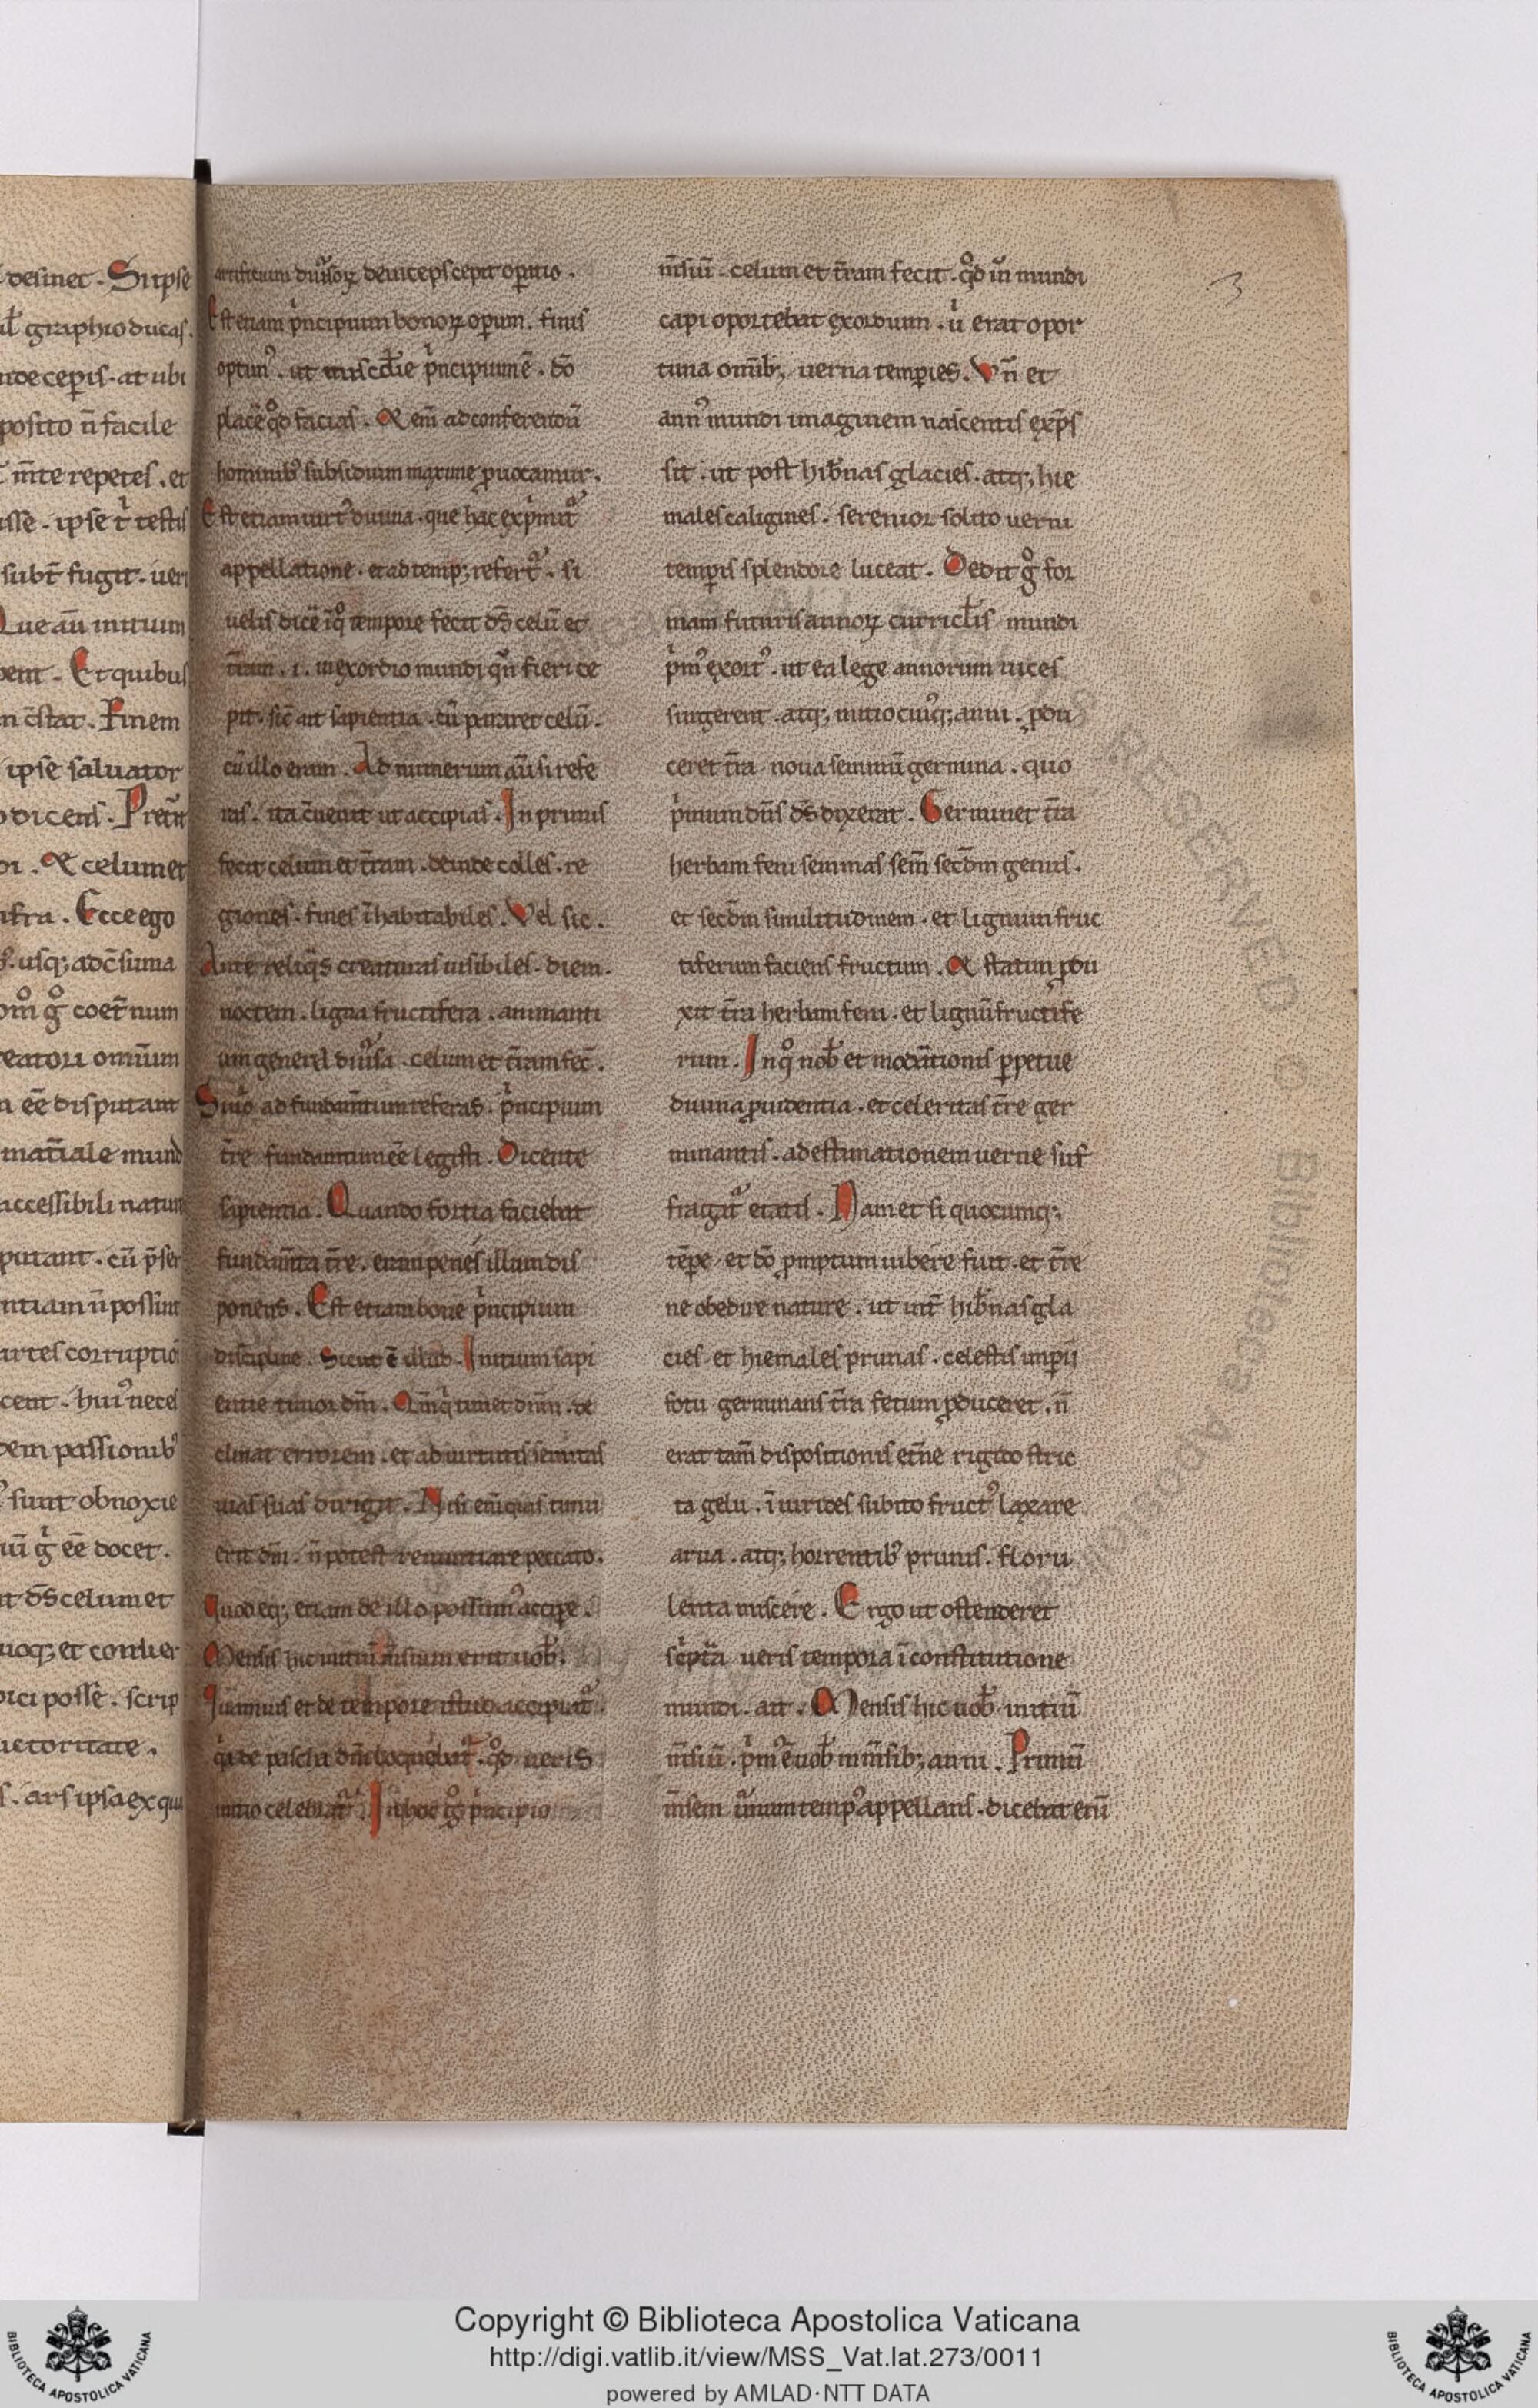 desinet . Si ipse
ul̄ graphio ducas .
inde ceperis . at ubi
posito n̄ facile
m̄te repetes . et
isse . ipse t̉ testis
subt̄ fugit . ueri
Que aūt initium
Et quibus
n c̄stat . Finem
ipse saluator
dicens . Pret̄it
Et celum et
ifra . Ecce ego
usq; ad c̄suma
om̊ g̊ coet̄num
creatori omīum
n eē disputant
mat̄iale mund
accessibili natur
putant . cū p̄ser
ntiam n̄ possint
artes corruptio
cent . hui᾽ neces
dem passionib᾽
sunt obnoxie
uī ġ eē docet .
it d̄s celum et
uoq; et conuer
dici posse . scrip
uctoritate .
s . ars ipsa ex qua
artificium diu̾soꝝ deinceps cepit op̱atio .
Est etiam p̉ncipium bonoꝝ op̱um . finis
optim᾽ . ut mis̄cdie p̉ncipium ē . dō
placē qd̊ facias . Et eni᷑ ad conferendū
hominib᾽ subsidium maxime ꝓuocamur .
Est etiam uirt᾽ diuina . que hac exp̉mit᷑
appellatione . et ad temp; refert᷑ . si
uelis dicē iq̊ tempore fecit d̄s celū et
t̄ram . i . in exordio mundi qn̄ fieri ce
pit . sic̄ ait sapientia . cū pararet celū .
cū illo eram . Ad numerum aūt si refe
ras . ita c̄uenit ut accipias . In primis
fecit celum et t̄ram . deinde colles . re
giones . fines īhabitabiles . Vel sic .
Ante reliq̉s creaturas uisibiles . diem .
noctem . ligna fructifera . animanti
um genera diu̾sa . celum et t̄ram fec̄ .
Si ůo ad fundam̄tum referas . p̉ncipium
t̄re fundam̄tum eē legisti . Dicente
sapientia . Quando fortia faciebat
fundam̄ta t̄re . eram penes illum dis
ponens . Est etiam bone p̉ncipium
discipline . Sicut ē illud . Initium sapi
entie timor dn̄i . Qm̄ q̉ timet dnm̄ . de
clinat errorem . et ad uirtutis semitas
uias suas dirigit . Nisi eni᷑ quis timu
erit dm̄ . n̄ potest renuntiare peccato .
Quod eq; etiam de illo possum᾽ accipe .
Mensis hic initiū m̄sium erit uob̄ .
Quamuis et de tempore istud accipiat᷑ .
q̉a de pascha dn̄i loquebat᷑ . qd̊ ueris
initio celebrat᷑ . In hoc g̊ p̉ncipio
3
m̄siū . celum et t̄ram fecit . qd̊ iñ mundi
capi oportebat exordium . ů erat opor
tuna omīb; uerna temp̱ies . Vn̄ et
ann᾽ mundi imaginem nascentis exp̄s
sit . ut post hib̾nas glacies . atq; hie
males caligines . serenior solito uerni
temp̱is splendore luceat . Dedit g̊ for
mam futuris annoꝝ curricl̄is mundi
p̉m᾽ exort᾽ . ut ea lege annorum uices
surgerent . atq; initio cuiusq; anni . ꝓdu
ceret t̄ra noua seminū germina . quo
p̉mum dn̄s d̄s dixerat . Germinet t̄ra
herbam feni seminas sem̄ sec̄dm genus .
et sec̄dm similitudinem . et lignum fruc
tiferum faciens fructum . Et statim ꝓdu
xit t̄ra herbam feni . et lignū fructife
rum . In q̊ nob̄ et moderationis p̱petue
diuina ꝓuidentia . et celeritas t̄re ger
minantis . ad estimationem uerne suf
fragat᷑ etatis . Nam et si quocumq;
tēpe . et dō ꝓmptum iubere fuit . et t̄re
ne obedire nature . ut int̄ hib̾nas gla
cies . et hiemales pruinas . celestis imp̱ii
fotu germinans t̄ra fetum ꝓduceret . n̄
erat tam̄ dispositionis et̄ne rigido stric
ta gelu . ī uirides subito fruct᾽ laxare
arua . atq; horrentib᾽ pruinis . floru
lenta miscere . Ergo ut ostenderet
sc̉ptura ueris tempora ī constitutione
mundi . ait . Mensis hic uob̄ initiū
m̄siū . p̉m᾽ ē uob̄ in m̄sib; anni . Primū
m̄sem u̾num temp᾽ appellans . dicebat eni᷑
Copyright © Biblioteca Apostolica Vaticana
http://digi.vatlib.it/view/MSS_Vat.lat.273/0011
powered by AMLAD·NTT DATA
BIBLIOTECA APOSTOLICA VATICANA
BIBLIOTECA APOSTOLICA VATICANA